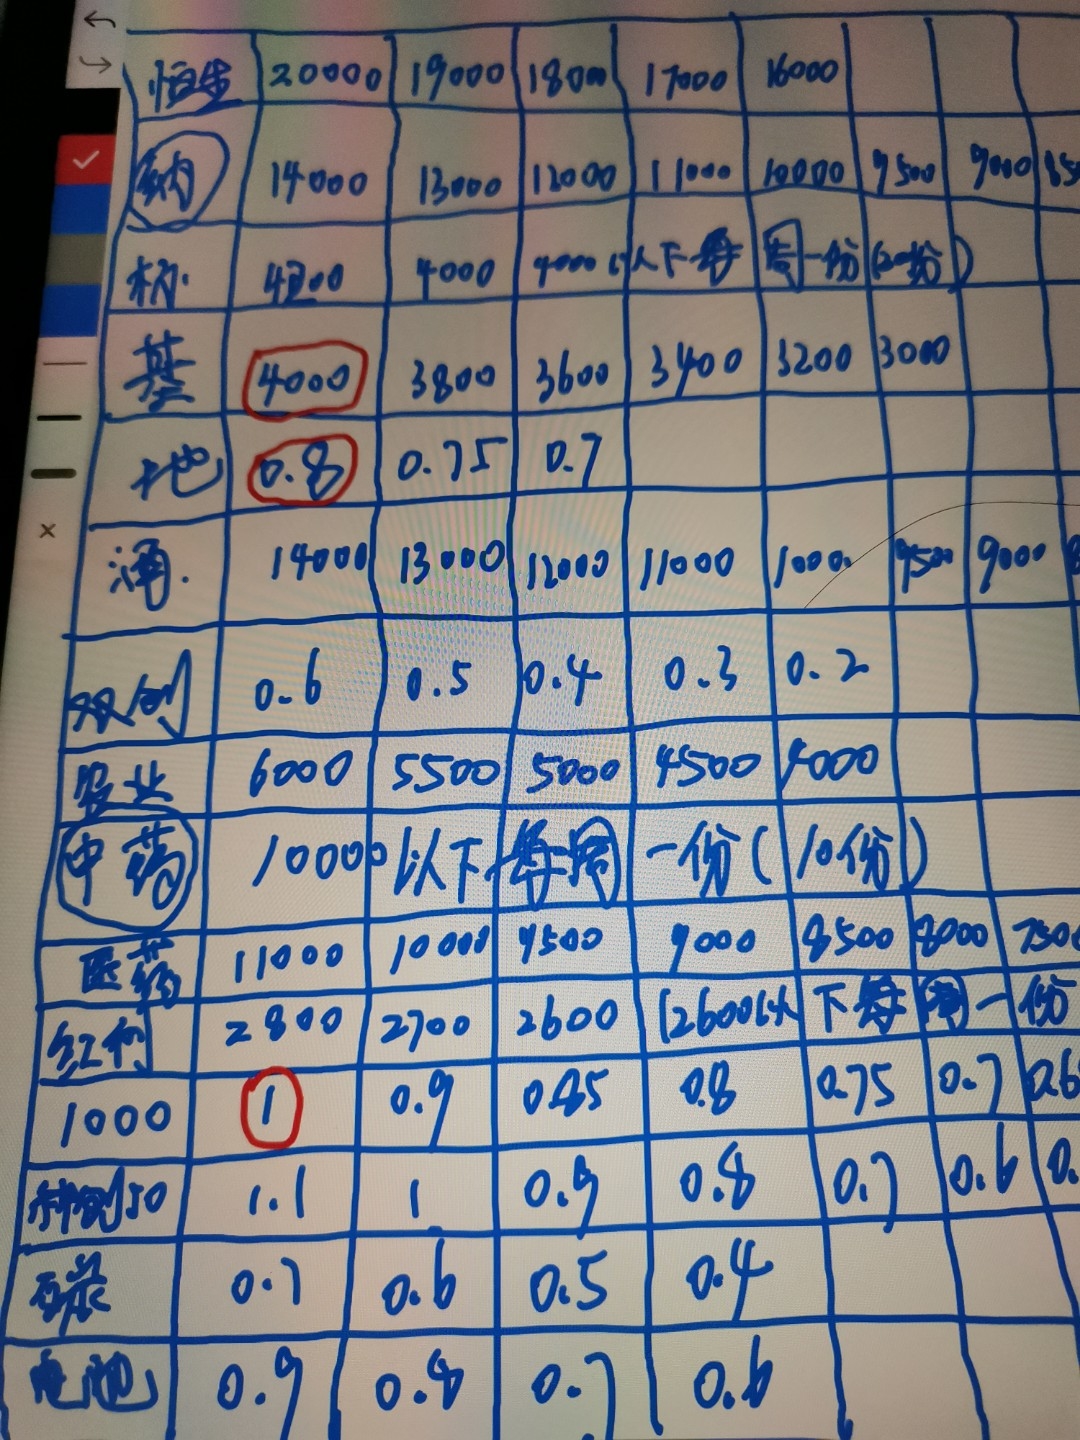 恒生 20000 19000 18000 17000 16000
纳 14000 13000 12000 11000 10000 9500 9000
标. 4200 4000 4000以下每周一份(20份)
基 4000 3800 3600 3400 3200 3000
地 0.8 0.75 0.7
通. 14000 13000 12000 11000 1000 9500 9000
双创 0.6 0.5 0.4 0.3 0.2
农业 6000 5500 5000 4500 4000
中药 10000以下每周一份(10份)
医药 11000 10000 9500 9000 8500 8000 7500
红利 2800 2700 2600 (2600以下每周一份
1000 1 0.9 0.85 0.8 0.75 0.7 0.6
科创50 1.1 1 0.9 0.8 0.7 0.6 0.
碳 0.7 0.6 0.5 0.4
电池 0.9 0.8 0.7 0.6